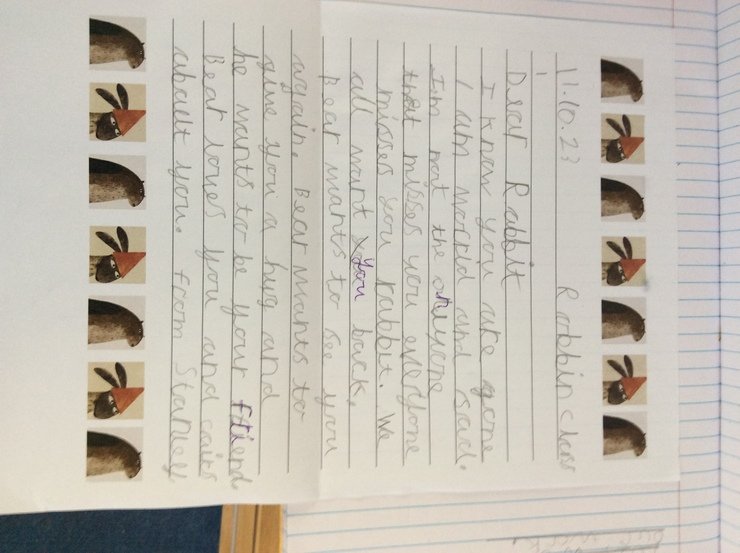 11.10.23 Robbin class
Dear Rabbit
I know you are gone
I am worrid and sad.
I'm not the onlyone
that misses you everyone
misses you rabbit. We
all want you back.
Bear wants to see you
again. Bear wants to
give you a hug and
he wants to be your friend.
Bear loves you and cairs
abault you. from Stanley